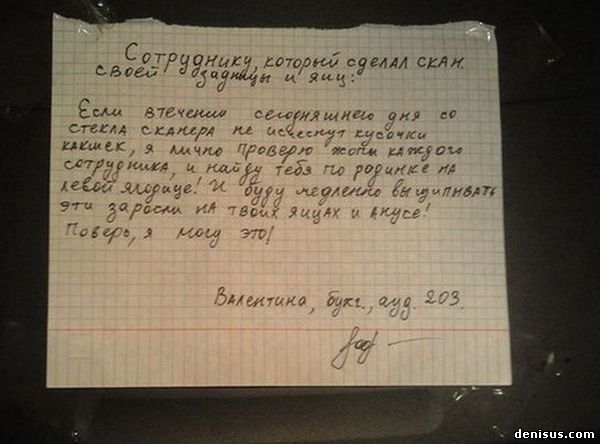 Сотруднику, который сделал скан
своей задницы и яиц:
Если втечении сегодняшнего дня со
стекла сканера не исчеснут кусочки
какшек, я лично проверю жопы каждого
сотрудника, и найду тебя по родинке на
левой ягодице! И буду медленно выщипывать
эти заросли на твоих яицах и анусе!
Поверь, я могу это!
Валентина, бухг., ауд. 203.
denisus.com